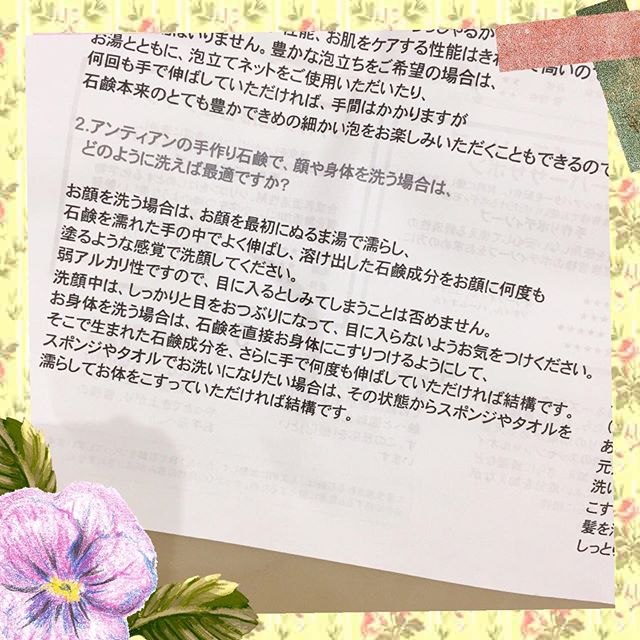 お肌をケアする性能はきわ
はいりません。豊かな泡立ちをご希望の場合は、
お湯とともに、泡立てネットをご使用いただいたり、
何回も手で伸ばしていただければ、手間はかかりますが
石鹸本来のとても豊かできめの細かい泡をお楽しみいただくこともできるので
2.アンティアンの手作り石鹸で、顔や身体を洗う場合は、
どのように洗えば最適ですか?
お顔を洗う場合は、お顔を最初にぬるま湯で濡らし、
石鹸を濡れた手の中でよく伸ばし、溶け出した石鹸成分をお顔に何度も
塗るような感覚で洗顔してください。
弱アルカリ性ですので、目に入るとしみてしまうことは否めません。
洗顔中は、しっかりと目をおつぶりになって、目に入らないようお気をつけください。
お身体を洗う場合は、石鹸を直接お身体にこすりつけるようにして、
そこで生まれた石鹸成分を、さらに手で何度も伸ばしていただければ結構です。
スポンジやタオルでお洗いになりたい場合は、その状態からスポンジやタオルを
濡らしてお体をこすっていただければ結構です。
あ
元
洗い
こす
髪を
しっと